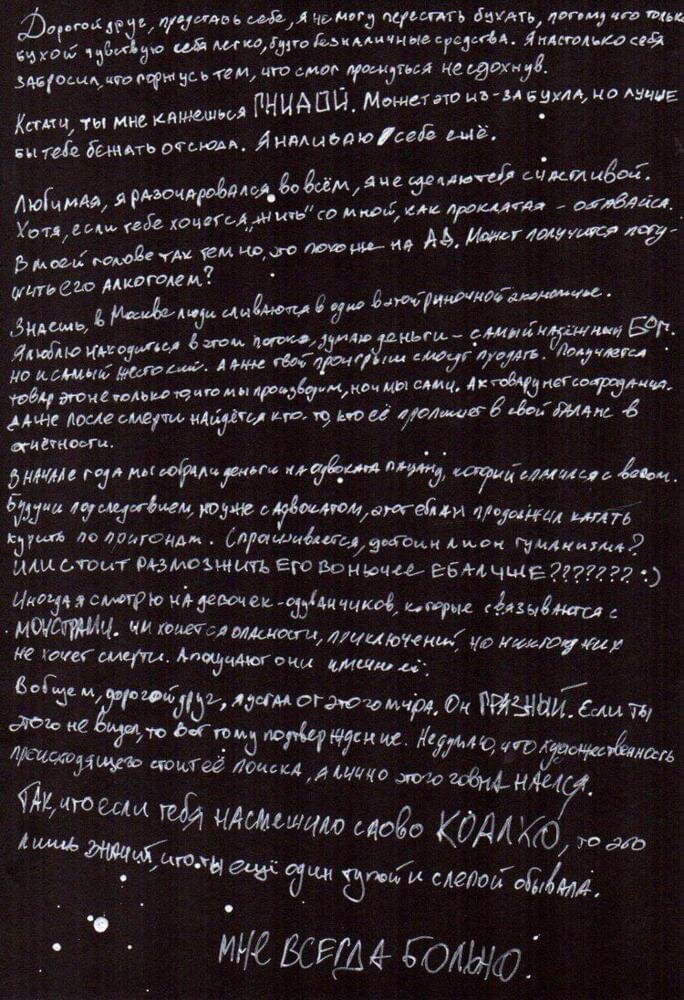 Дорогой друг, представь себе, я не могу перестать бухать, потому что только
бухой чувствую себя легко, будто безналичные средства. Я настолько себя
забросил, что горжусь тем, что смог проснуться не сдохнув.
Кстати, ты мне кажешься ГНИДОЙ. Может это из-за бухла, но лучше
бы тебе бежать отсюда. Я наливаю себе ещё.
Любимая, я разочаровался во всём, я не сделаю тебя счастливой.
Хотя, если тебе хочется „жить" со мной, как проклятая - оставайся.
В моей голове так темно, это похоже на АД. Может получится поту-
шить его алкоголем?
Знаешь, в Москве люди сливаются в одно в этой рыночной экономике.
Я люблю находиться в этом потоке, думаю деньги - самый надёжный БОГ.
но и самый жестокий. Даже твой проигрыш смогут продать. Получается
товар это не только то, что мы производим, но и мы сами. А к товару нет сострадания.
Даже после смерти найдётся кто-то, кто её пропишет в свой баланс в
отчётности.
В начале года мы собрали деньги на адвоката пацану, который спалился с весом.
Будучи под следствием, но уже с адвокатом, этот еблан продолжил катать
курить по пригонам. Спрашивается, достоин ли он гуманизма?
Или стоит РАЗМОЗЖИТЬ ЕГО ВОНЮЧЕЕ ЕБАЛИЩЕ??????? :)
Иногда я смотрю на девочек-одуванчиков, которые связываются с
МОНСТРАМИ. Им хочется опасности, приключений, но никто из них
не хочет смерти. А получают они именно её.
В общем, дорогой друг, я устал от этого мира. Он ГРЯЗНЫЙ. Если ты
этого не видел, то вот тому подтверждение. Не думаю, что художественность
происходящего стоит её поиска, я лично этого говна наелся.
Так, что если тебя насмешило слово, то это
лишь значит, что ты ещё один тупой и слепой обывала.
МНЕ ВСЕГДА БОЛЬНО.